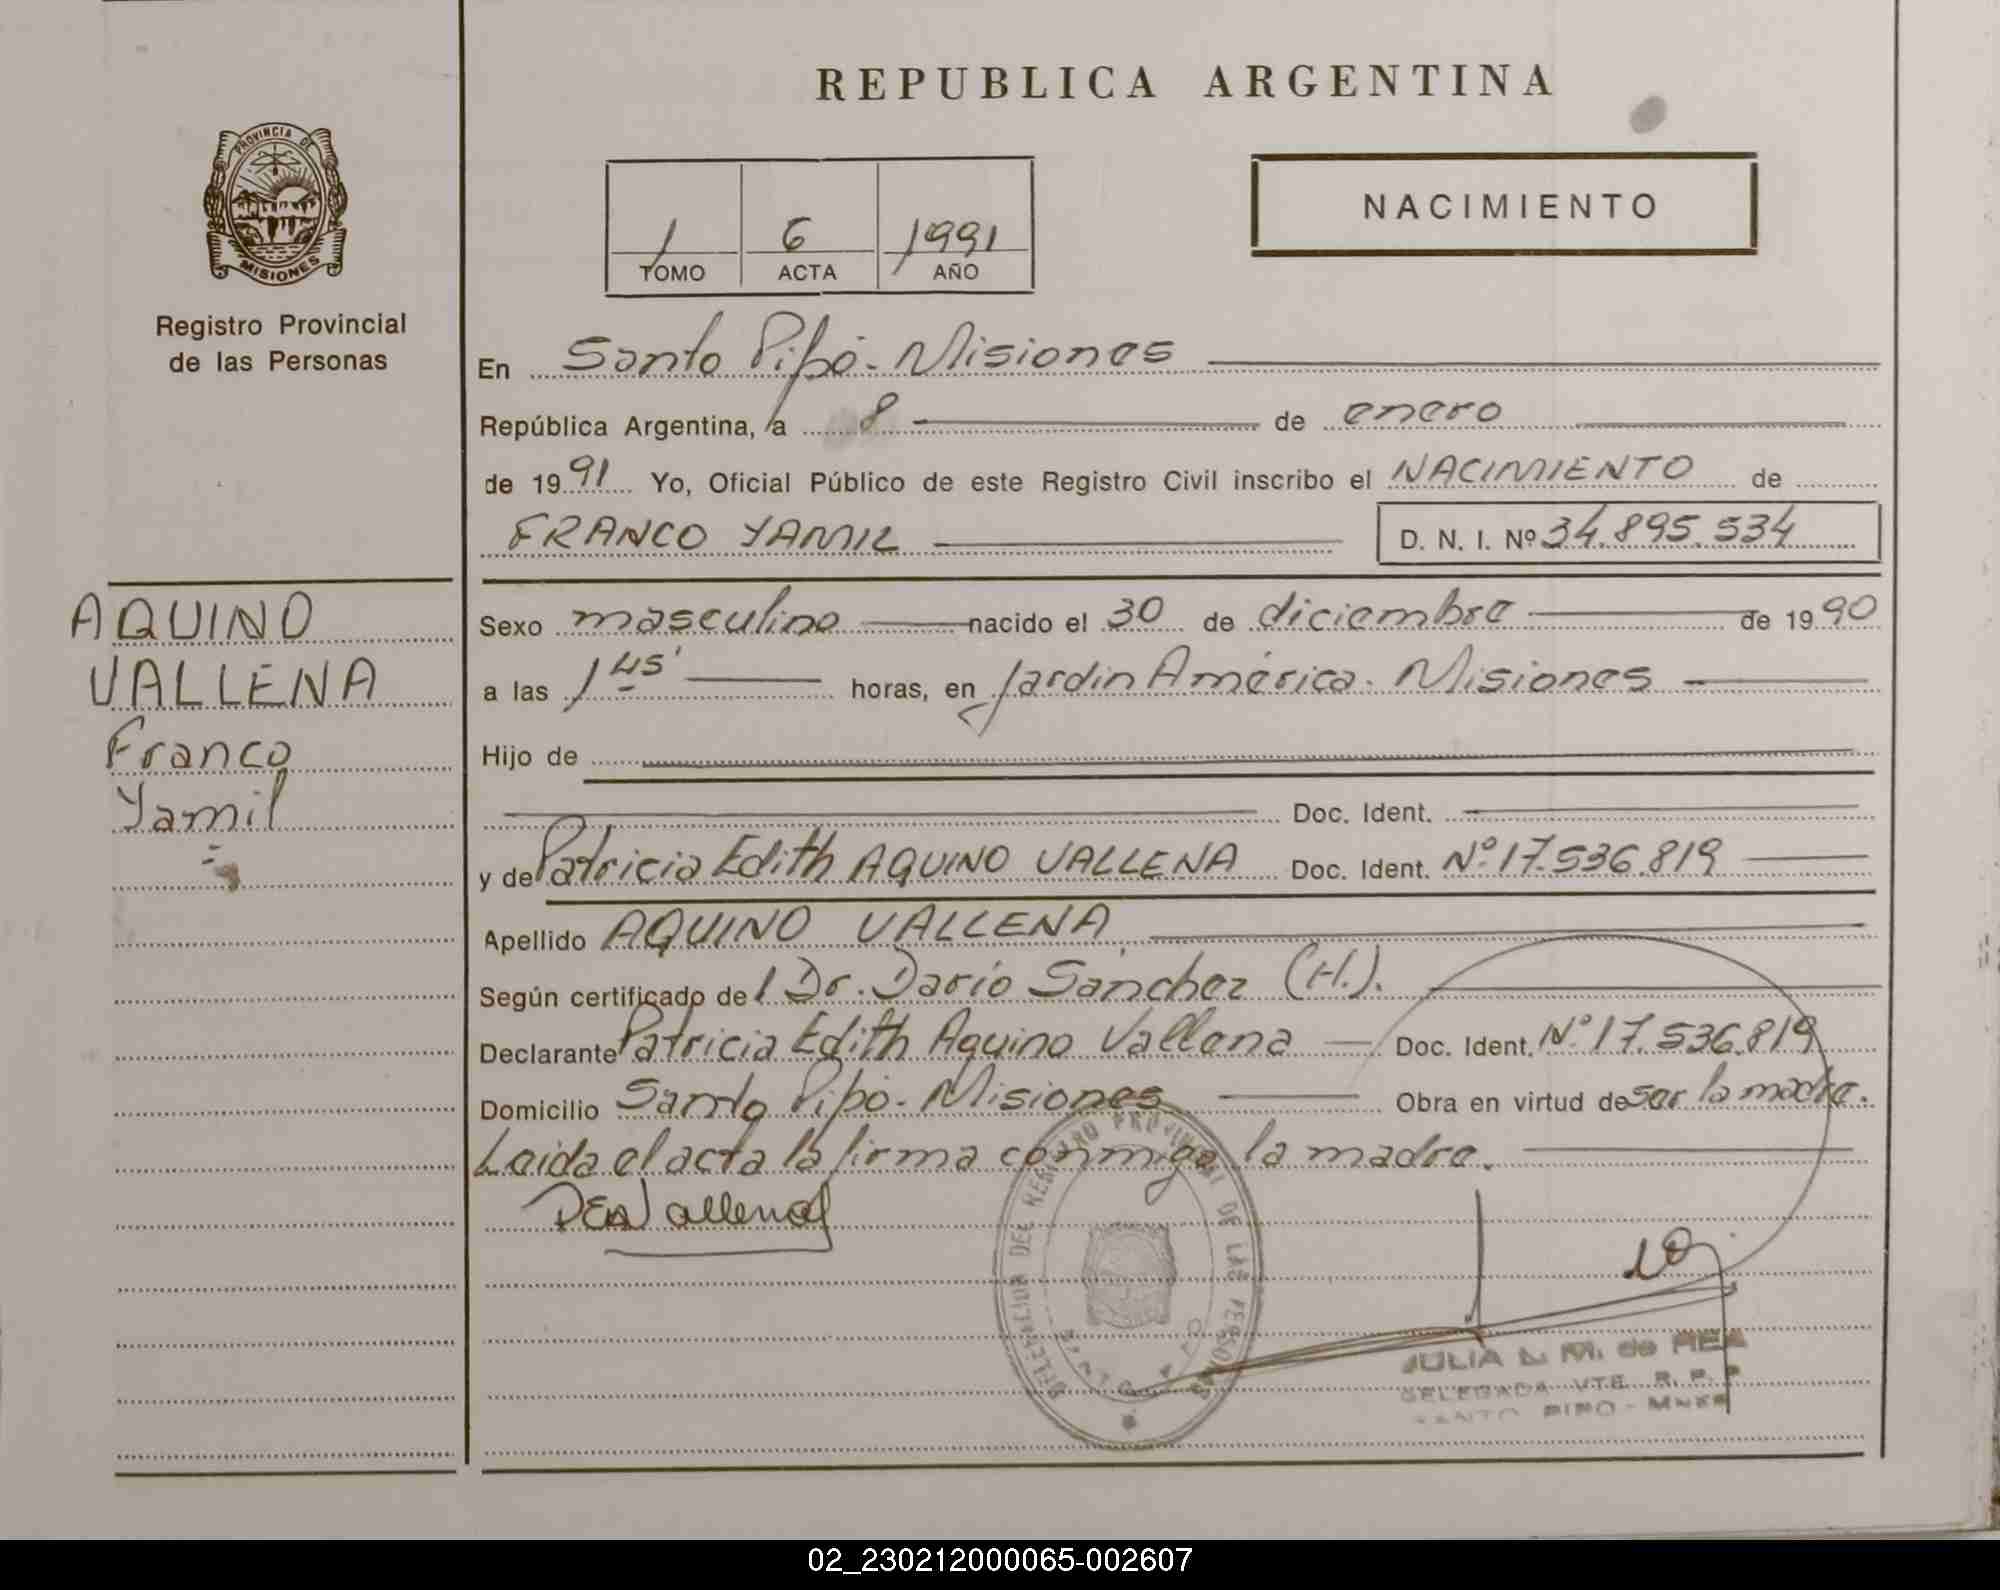 REPUBLICA ARGENTINA
PROVINCIA DE
MISIONES
Registro Provincial
de las Personas
NACIMIENTO
1 6 1991
TOMO ACTA AÑO
En Santo Pipó - Misiones
República Argentina, a 8 de enero
de 1991 Yo, Oficial Público de este Registro Civil inscribo el NACIMIENTO de
FRANCO YAMIL D. N. I. Nº 34.895.534
AQUINO
VALLENA
Franco
Yamil
Sexo masculino nacido el 30 de diciembre de 1990
a las 1 45' horas, en Jardin América - Misiones
Hijo de
Doc. Ident.
y de Patricia Edith AQUINO VALLENA Doc. Ident. Nº 17.536.819
Apellido AQUINO VALLENA
Según certificado del Dr. Darío Sánchez (H.).
Declarante Patricia Edith Aquino Vallena Doc. Ident. Nº 17.536.819
Domicilio Santo Pipó - Misiones Obra en virtud de ser la madre.
Leida el acta la firma conmigo la madre.
PEAVallena
DELEGACION DEL REGISTRO PROVINCIAL DE LAS PERSONAS
SANTO PIPO
JULIA L. M. de REA
DELEGADA VTE. R. P. P
SANTO PIPO - MNES
02_230212000065-002607